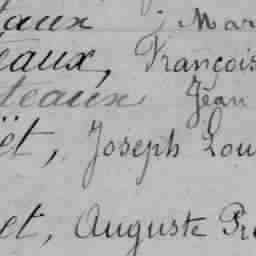 taux ; Mar
eaux, François
teaux Jean
ët, Joseph Lou
et, Auguste Pr